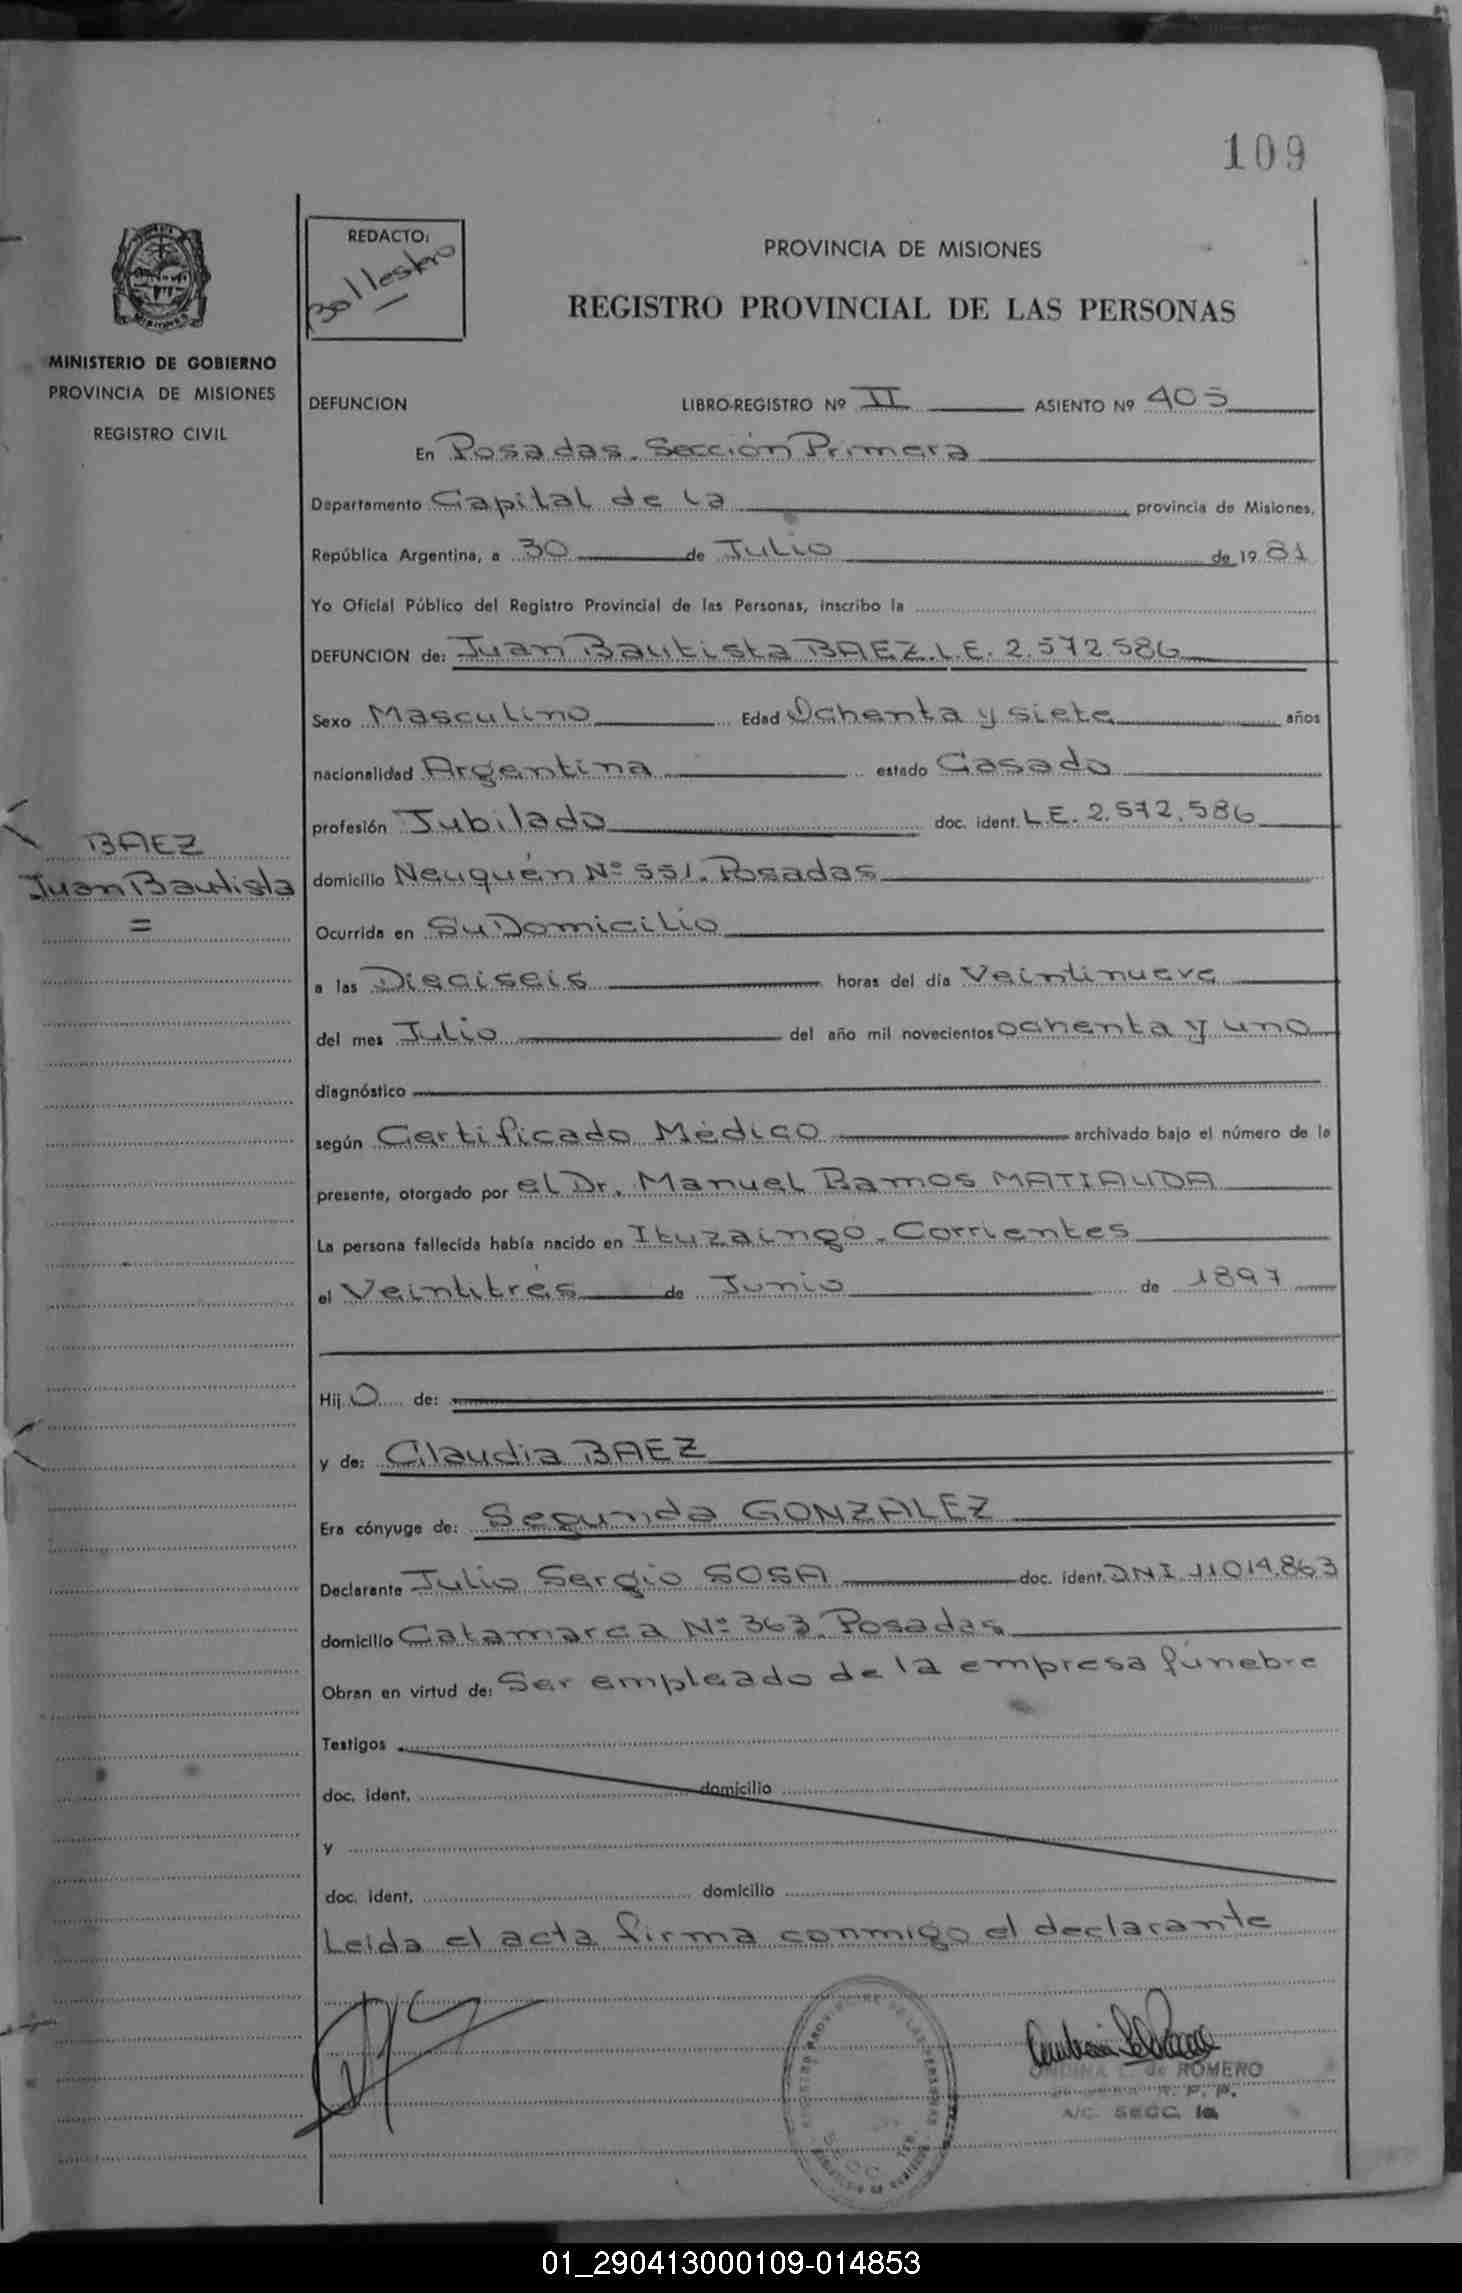 109
REDACTO:
Ballestero
PROVINCIA DE MISIONES
REGISTRO PROVINCIAL DE LAS PERSONAS
MISIONES
MINISTERIO DE GOBIERNO
PROVINCIA DE MISIONES
REGISTRO CIVIL
DEFUNCION LIBRO-REGISTRO Nº II ASIENTO Nº 405
En Posadas. Sección Primera
Departamento Capital de la provincia de Misiones,
República Argentina, a 30 de Julio de 1981
Yo Oficial Público del Registro Provincial de las Personas, inscribo la
DEFUNCION de: Juan Bautista BAEZ. L.E. 2.572.586
Sexo Masculino Edad Ochenta y siete años
nacionalidad Argentina estado Casado
profesión Jubilado doc. ident. L.E. 2.572.586
BAEZ
Juan Bautista
=
domicilio Neuquén Nº 551. Posadas
Ocurrida en Su Domicilio
a las Dieciseis horas del día Veintinueve
del mes Julio del año mil novecientos ochenta y uno
diagnóstico
según Certificado Médico archivado bajo el número de la
presente, otorgado por el Dr. Manuel Ramos MATIAUDA
La persona fallecida había nacido en Ituzaingó. Corrientes
el Veintitrés de Junio de 1897
Hij O de:
y de: Claudia BAEZ
Era cónyuge de: Segunda GONZALEZ
Declarante Julio Sergio SOSA doc. ident. DNI 11.014.863
domicilio Catamarca Nº 363. Posadas
Obran en virtud de: Ser empleado de la empresa fúnebre
Testigos
doc. ident. domicilio
y
doc. ident. domicilio
Leida el acta firma conmigo el declarante
REGISTRO PROVINCIAL DE LAS PERSONAS
ONDINA L. de ROMERO
R. P. P.
A/C. SECC. 1a
01_290413000109-014853